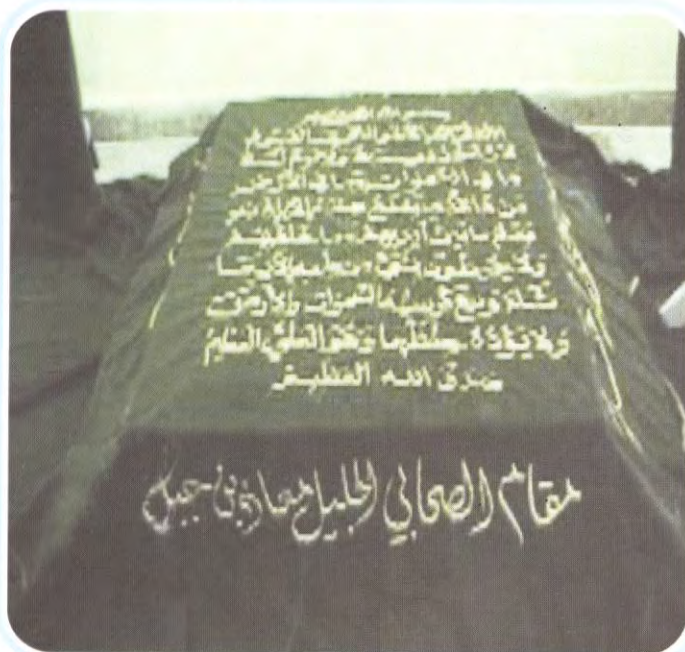 بسم الله الرحمن الرحيم
الله لا إله إلا هو الحي القيوم
لا تأخذه سنة ولا نوم له
ما في السموات وما في الأرض
من ذا الذي يشفع عنده إلا بإذنه
يعلم ما بين أيديهم وما خلفهم
ولا يحيطون بشيء من علمه إلا بما
شاء وسع كرسيه السموات والأرض
ولا يؤده حفظهما وهو العلي العظيم
صدق الله العظيم
مقام الصحابي الجليل معاذ بن جبل